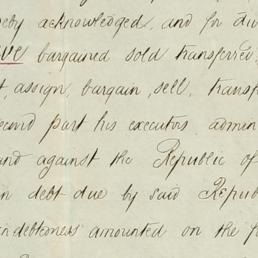 eby acknowledged, and for div
ve bargained sold transferred,
t, assign, bargain, sell, transf
econd part his executors admin
and against the Republic of
n debt due by said Republ
indebtedness amounted on the f